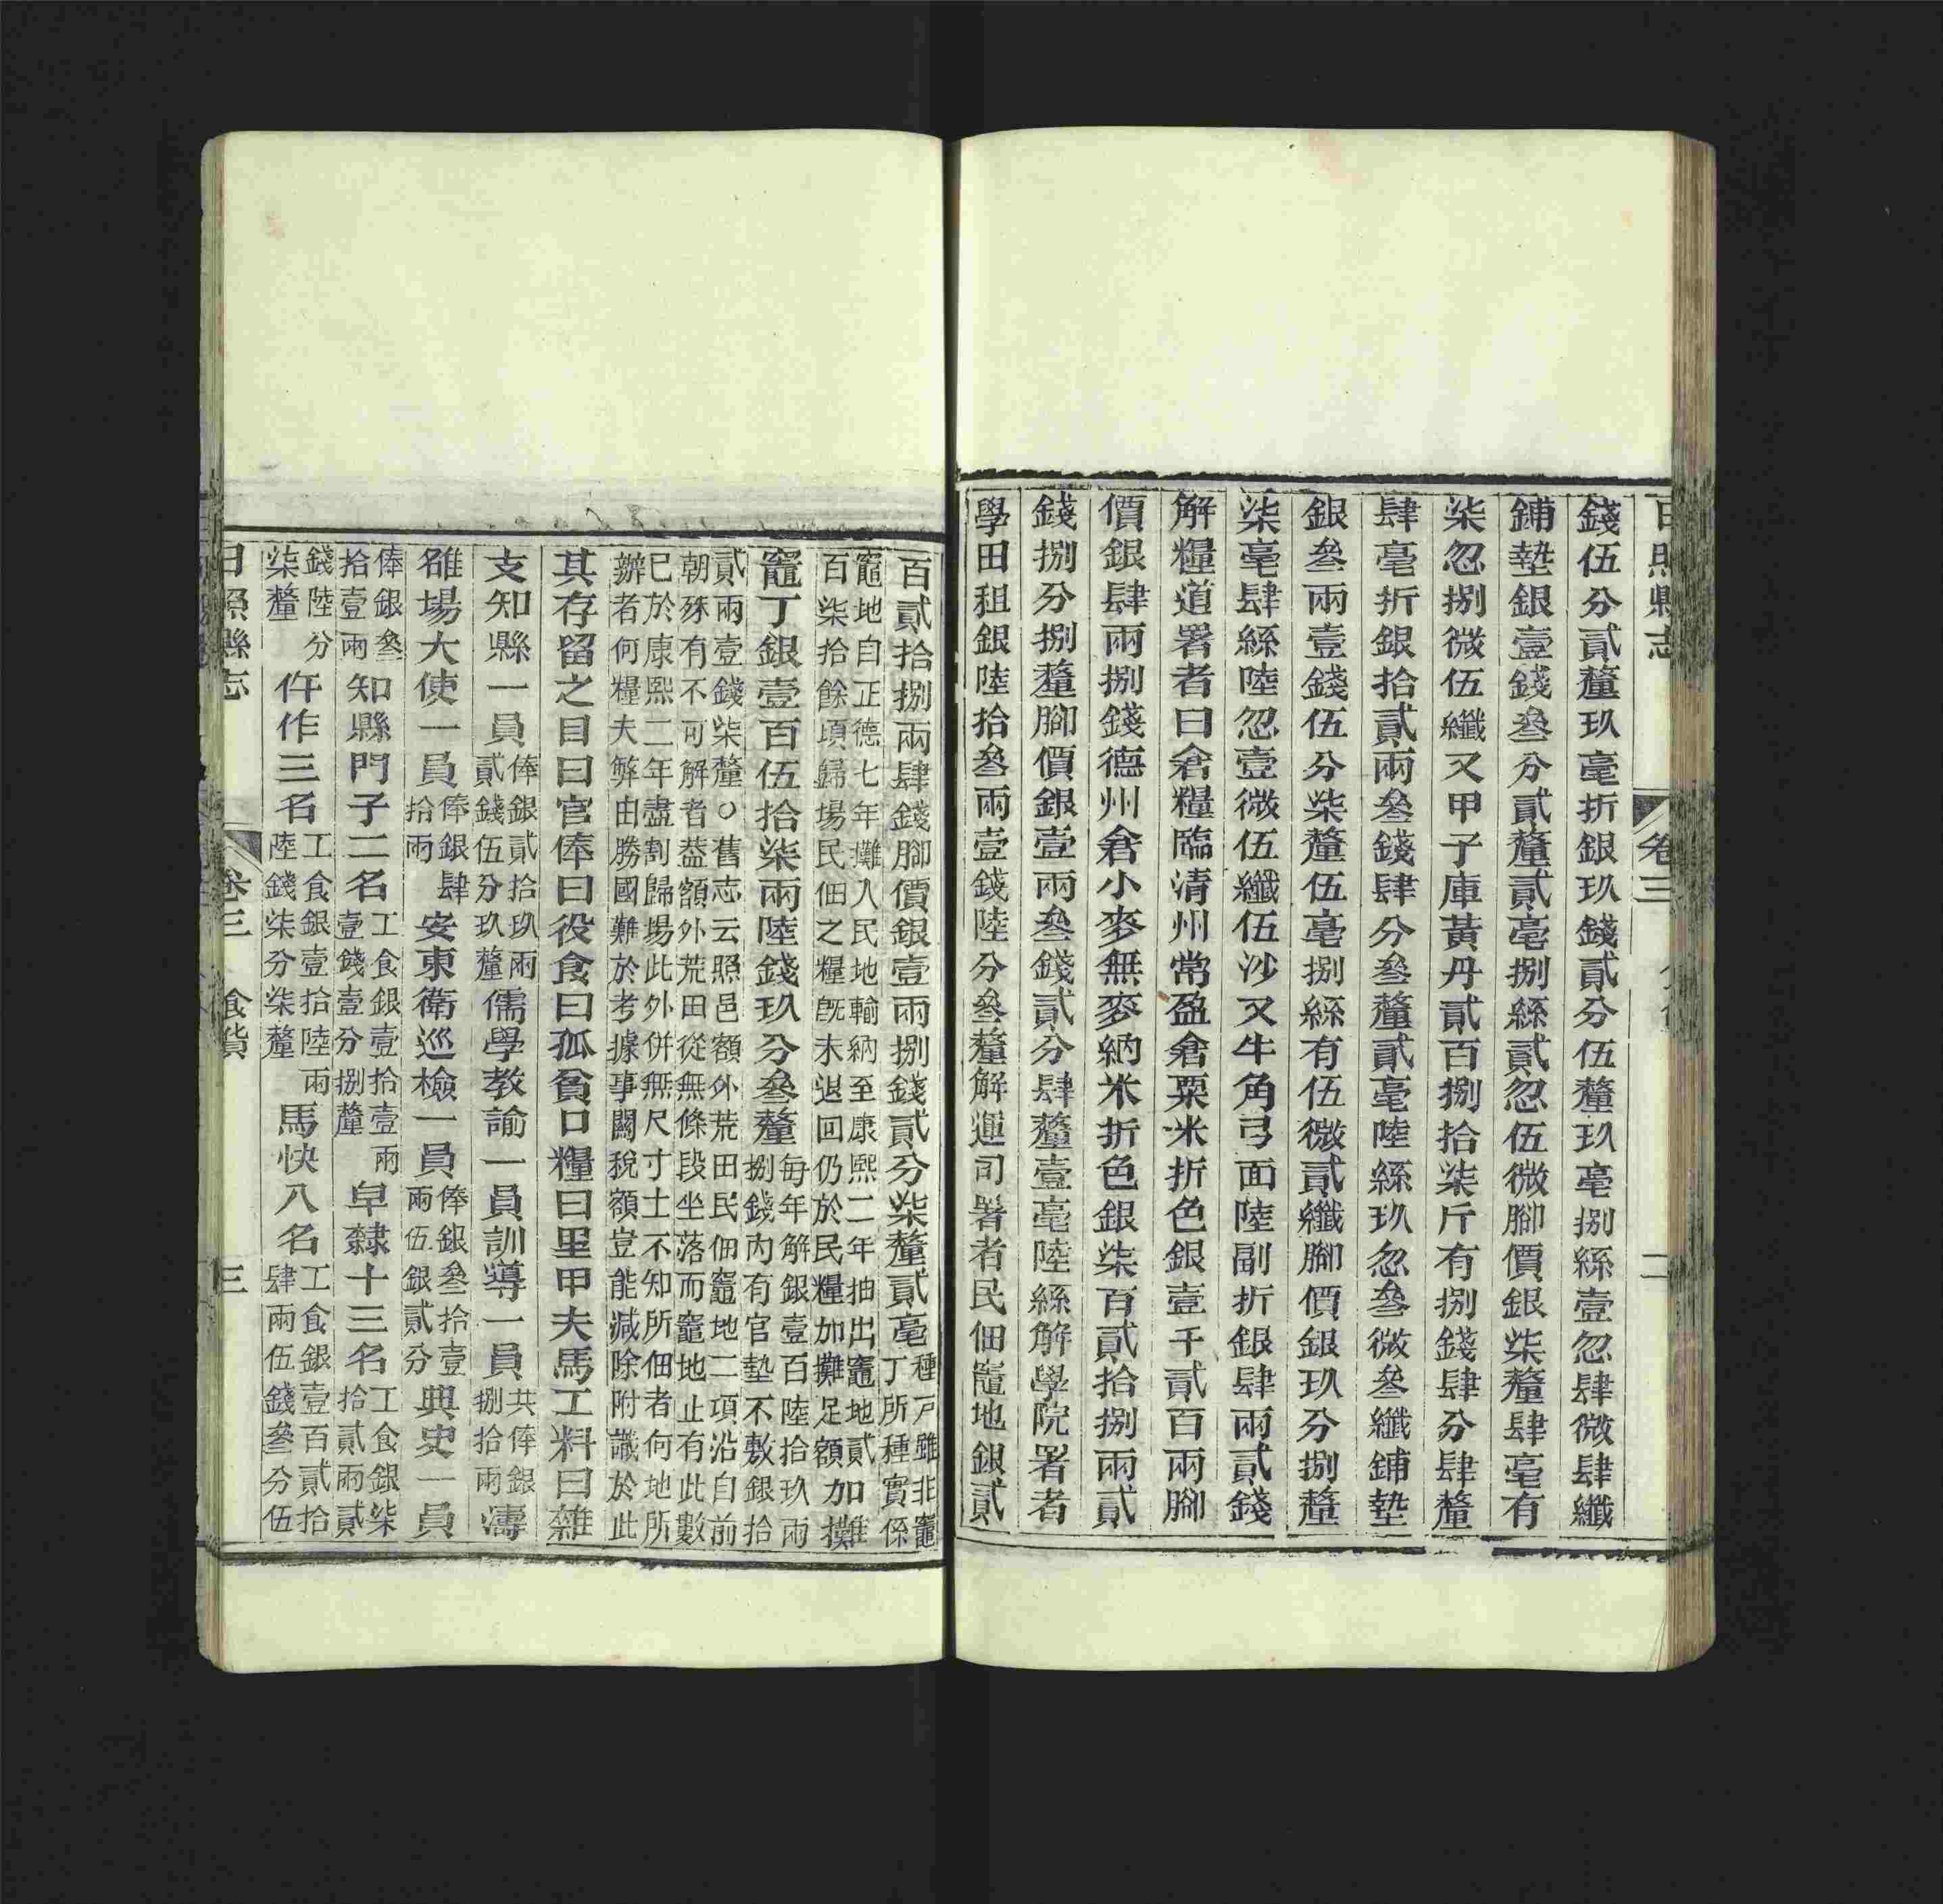 日照縣志
卷三
二
錢伍分貳釐玖毫折銀玖錢貳分伍釐玖毫捌絲壹忽肆微肆纖
鋪墊銀壹錢叄分貳釐貳毫捌絲貳忽伍微腳價銀柒釐肆毫有
柒忽捌微伍纖又甲子庫黃丹貳百捌拾柒斤有捌錢肆分肆釐
肆毫折銀拾貳兩叄錢肆分叄釐貳毫陸絲玖忽叄微叄纖鋪墊
銀叄兩壹錢伍分柒釐伍毫捌絲有伍微貳纖腳價銀玖分捌釐
柒毫肆絲陸忽壹微伍纖伍沙又牛角弓面陸副折銀肆兩貳錢
解糧道署者曰倉糧臨清州常盈倉粟米折色銀壹千貳百兩腳
價銀肆兩捌錢德州倉小麥無麥納米折色銀柒百貳拾捌兩貳
錢捌分捌釐腳價銀壹兩叄錢貳分肆釐壹毫陸絲解學院署者
學田租銀陸拾叄兩壹錢陸分叄釐解運司署者民佃竈地銀貳
百貳拾捌兩肆錢腳價銀壹兩捌錢貳分柒釐貳毫種戶雖非竈丁所種實係
竈地自正德七年攤入民地輸納至康熙二年抽出竈地貳加攤百柒拾餘頃歸場民佃之糧旣未退回仍於民糧加攤足額加攤
竈丁銀壹百伍拾柒兩陸錢玖分叄釐每年解銀壹百陸拾玖兩捌錢內有官墊不敷銀拾
貳兩壹錢柒釐○舊志云照邑額外荒田民佃竈地二項沿自前朝殊有不可解者葢額外荒田從無條段坐落而竈地止有此數
已於康熙二年盡割歸場此外併無尺寸土不知所佃者何地所辦者何糧夫弊由勝國難於考據事關稅額豈能減除附議於此
其存留之目曰官俸曰役食曰孤貧口糧曰里甲夫馬工料曰雜
支知縣一員俸銀貳拾玖兩貳錢伍分玖釐儒學教諭一員訓導一員共俸銀捌拾兩濤
雒場大使一員俸銀肆拾兩安東衛巡檢一員俸銀叄拾壹兩伍銀貳分典史一員
俸銀叄拾壹兩知縣門子二名工食銀壹拾壹兩壹錢壹分捌釐皁隸十三名工食銀柒拾貳兩貳
錢陸分柒釐仵作三名工食銀壹拾陸兩陸錢柒分柒釐馬快八名工食銀壹百貳拾肆兩伍錢叄分伍
日照縣志
卷三
食貨
三